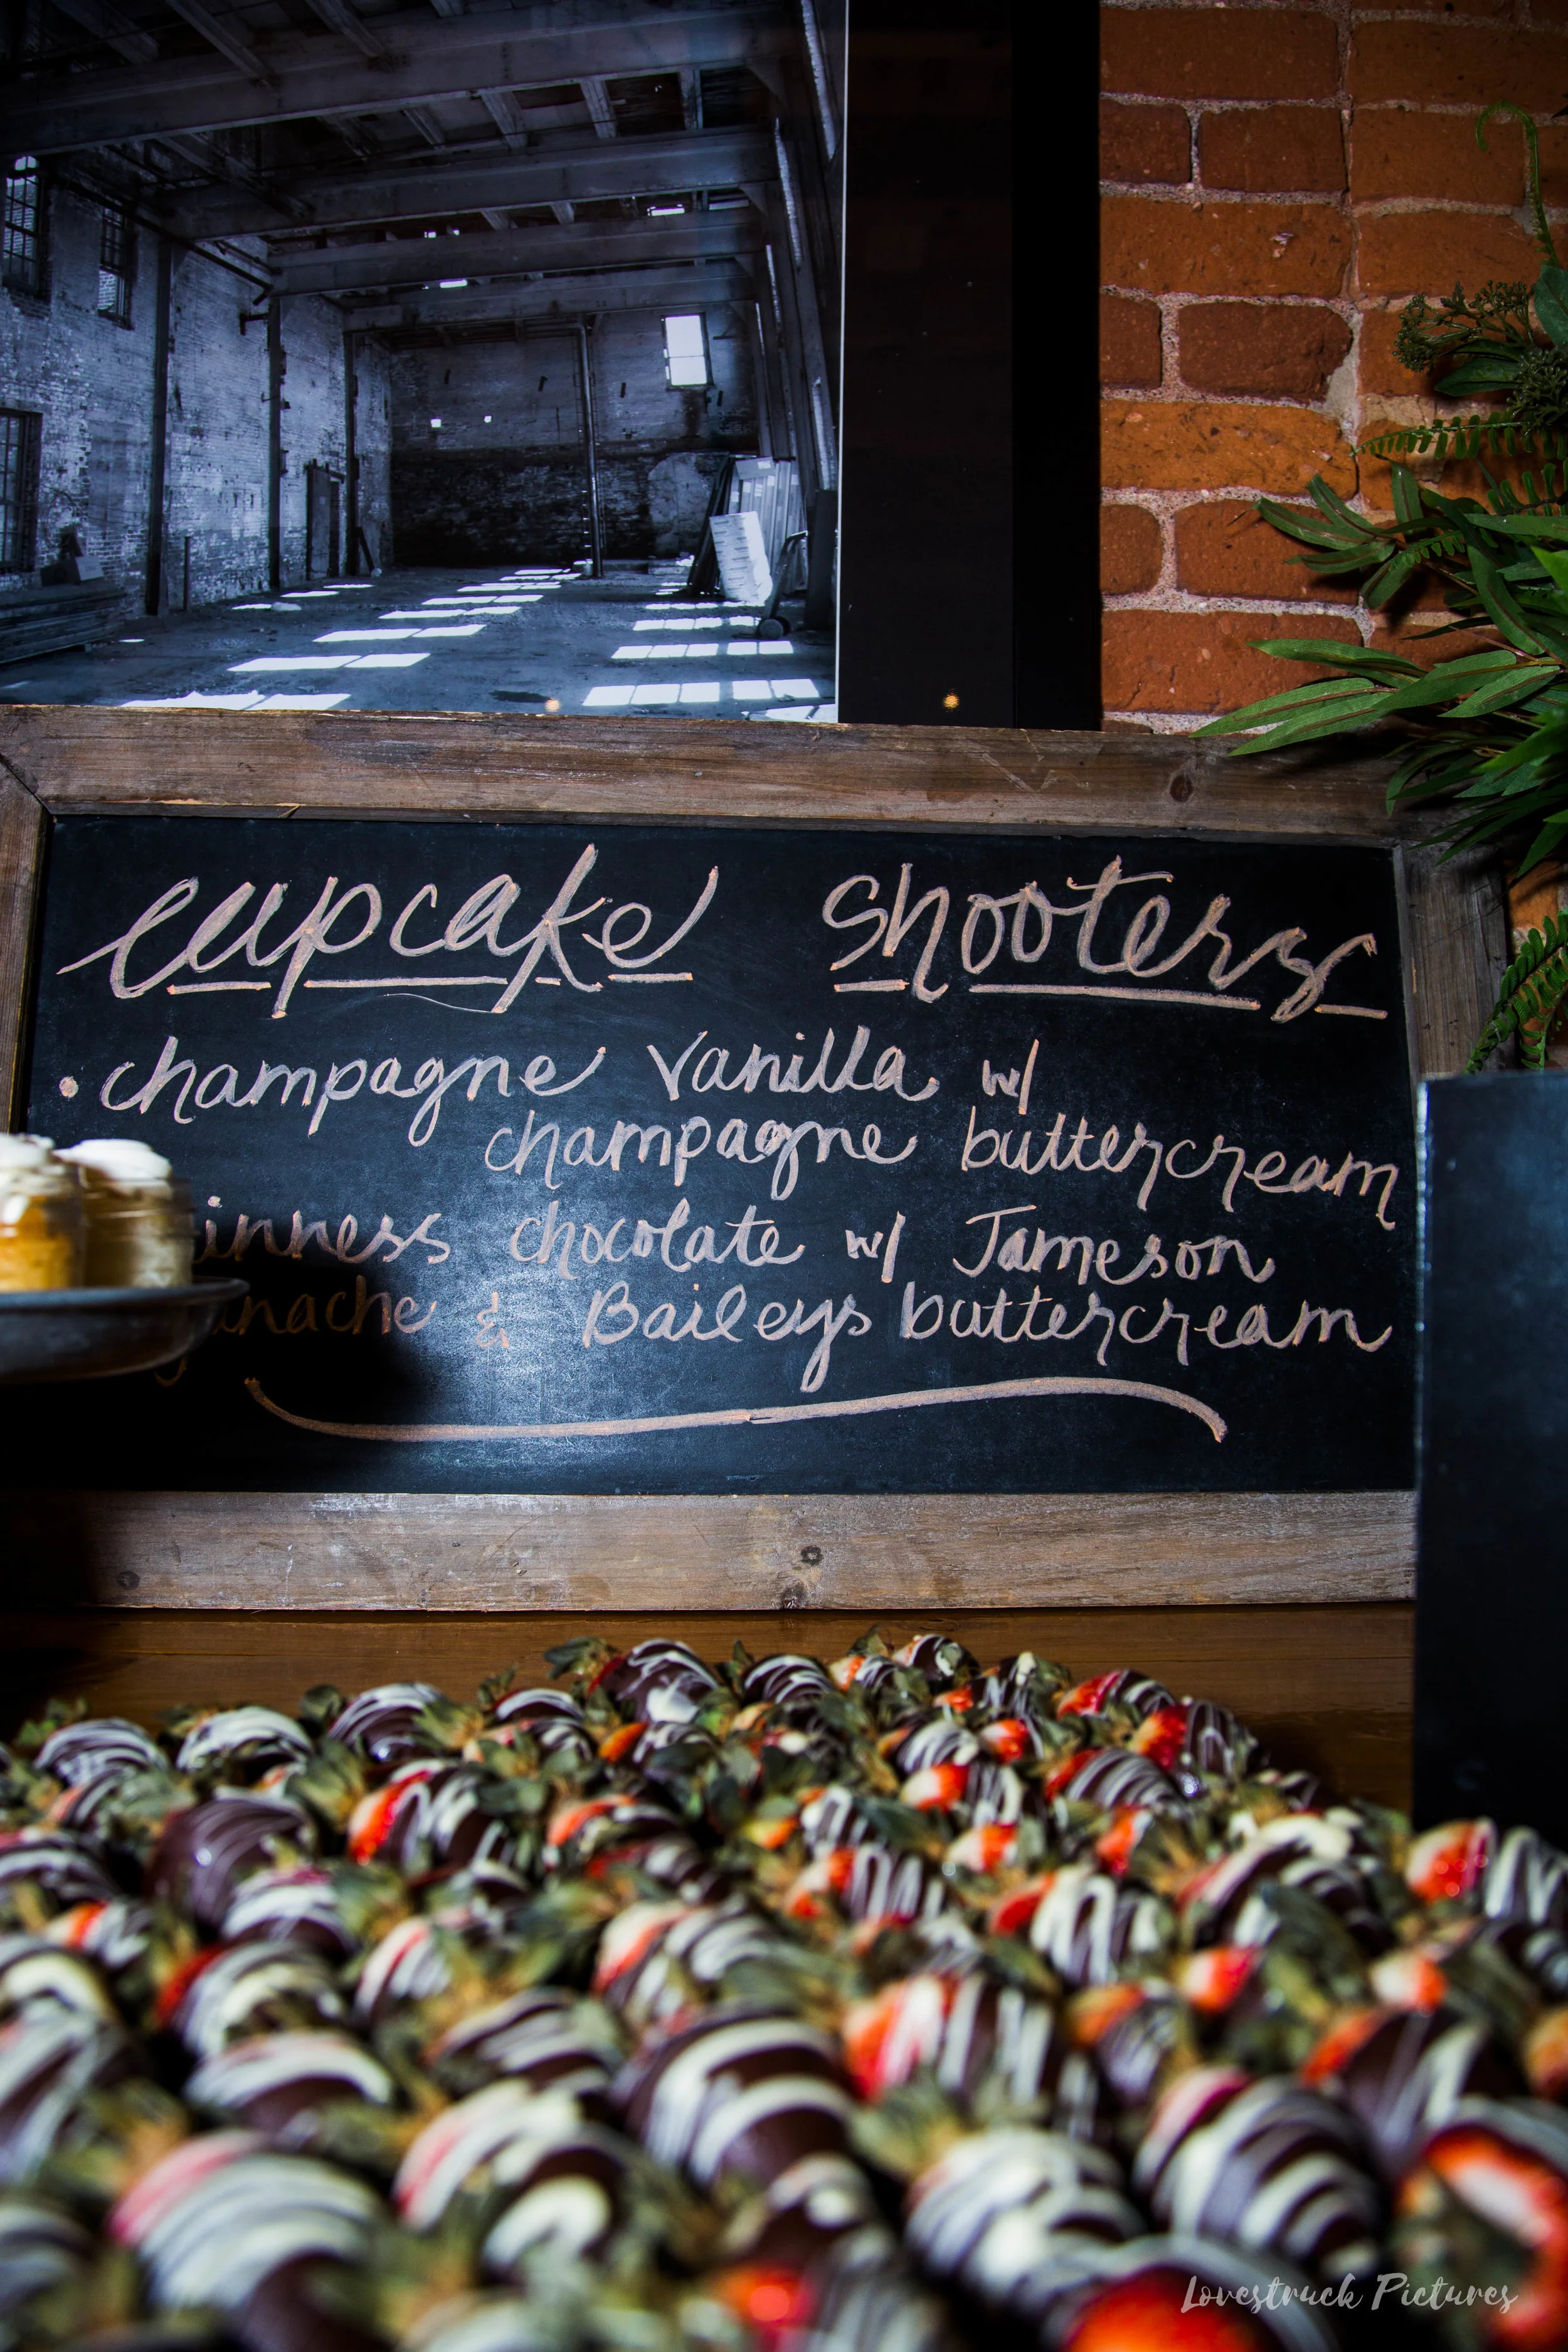 cupcake shooters
• champagne vanilla w/
champagne buttercream
inness chocolate w/ Jameson
nache & Baileys buttercream
Lovestruck Pictures